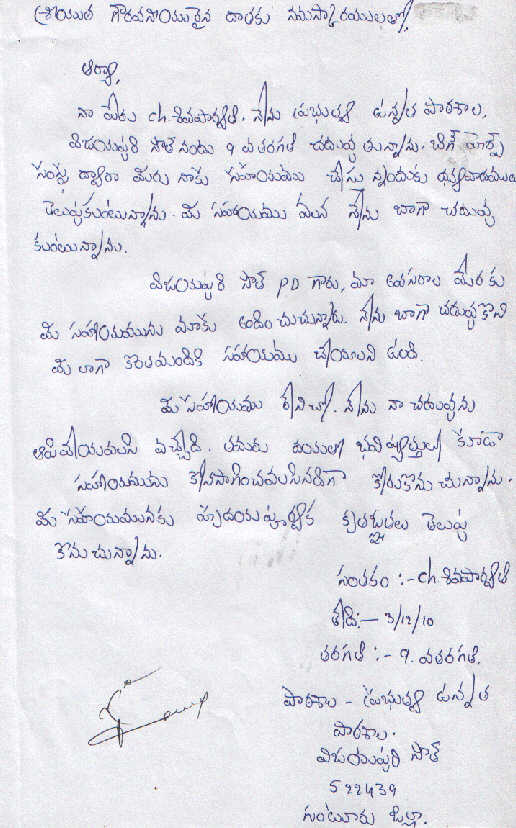 శ్రీయుత గౌరవనీయులైన దాతకు నమస్కారములతో,
ఆర్యా,
నా పేరు ch. శివపార్వతి. నేను ప్రభుత్వ ఉన్నత పాఠశాల,
విజయపురి సౌత్ నందు 9 వతరగతి చదువు తున్నాను.
సంస్థ ద్వారా మీరు నాకు సహాయము చేస్తు న్నందుకు ధన్యవాదములు
తెలుపుకుంటున్నాను. మీ సహాయము వలన నేను బాగా చదువు
కుంటున్నాను.
విజయపురి సౌత్ PD గారు, మా అవసరాల మేరకు
మీ సహాయమును మాకు అందించుచున్నారు. నేను బాగా చదువుకొని
మీ లాగా కొంతమందికి సహాయము చేయాలని ఉంది.
మీ సహాయము లేనిచో, నేను నా చదువును
ఆపివేయవలసి వచ్చేది. తమరు దయతో భవిష్యత్తులో కూడా
సహాయమును కొనసాగించవలసినదిగా కోరుకొను చున్నాను.
మీ సహాయమునకు హృదయపూర్వక కృతజ్ఞతలు తెలుపు
కొను చున్నాను.
సంతకం :- ch. శివపార్వతి
తేది:- 3/12/10
తరగతి :- 9. వతరగతి.
పాఠశాల - ప్రభుత్వ ఉన్నత
పాఠశాల.
విజయపురి సౌత్
522439
గుంటూరు జిల్లా.